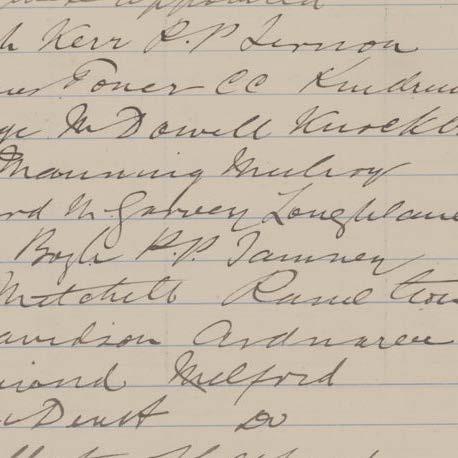 appointed
h Kerr P.P Fernon
Toner CC Kindrum
ge McDowell Knockb
Manning Mulroy
rd McGarvey Loughlane
Boyle P.P. Tamney
Mitchell Ramelton
avidson Ardnaree
mond Milford
Do